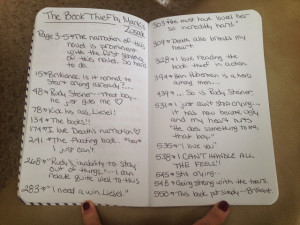 The Book Thief by Markus
Zusak
Page 3-5* The narration of this
novel is prominent
with the first glimpse
of this novel. So hard
to do.
15* Brilliance is it normal to
start crying already?...
48* Rudy Steiner - That boy
he just gets me ♡
78* Kick his ass, Liesel!
134* The books!!
174* I love Death's narration ♡
241* The Floating book... *sob*
I just can't
268* "Rudy's inability to stay
out of things." - I can
relate quite well to this.
283* "I need a win, Liesel."
303* He must have loved her
so incredibly hard."
309* Death also breaks my
heart
328* I love reading the
book thief in action
394* Hans Hubermann is a hero
among men...
439* ... So is Rudy Steiner.
531* I just can't stop crying...
it has now become ugly
and my heart hurts
"He does something to me,
that boy."
535* "I love you"
538* I CAN'T HANDLE ALL
THE FEELS!!
545* Still crying...
548* Going strong with the tears.
550* This book put simply - Brilliant.